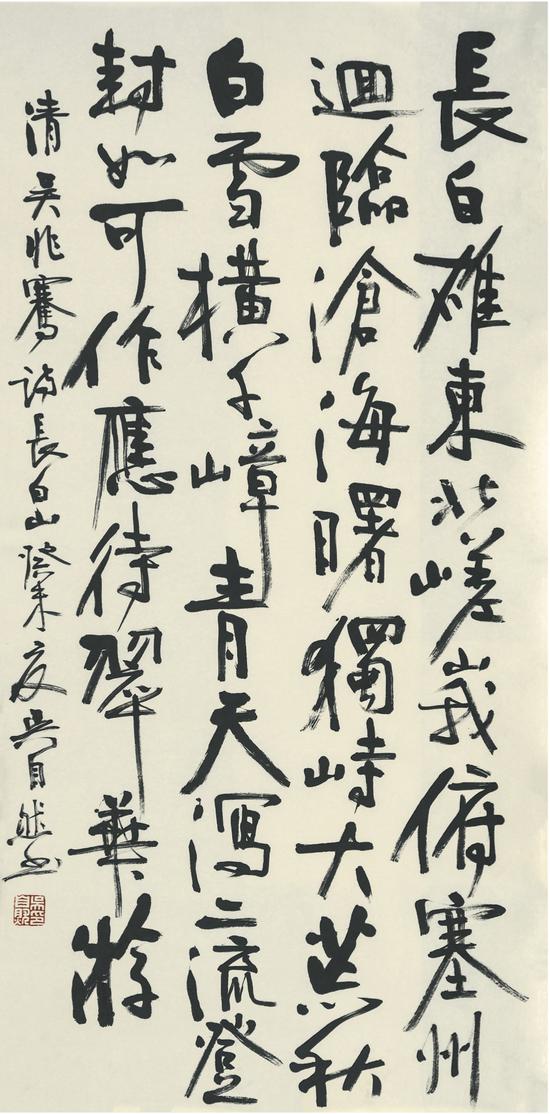 長白雄東北嵯峨俯塞州
迴臨滄海曙獨峙大荒秋
白雪橫千嶂青天瀉二流登
封如可作應待翠華游
清吴兆騫詩長白山癸未夏吴自然書